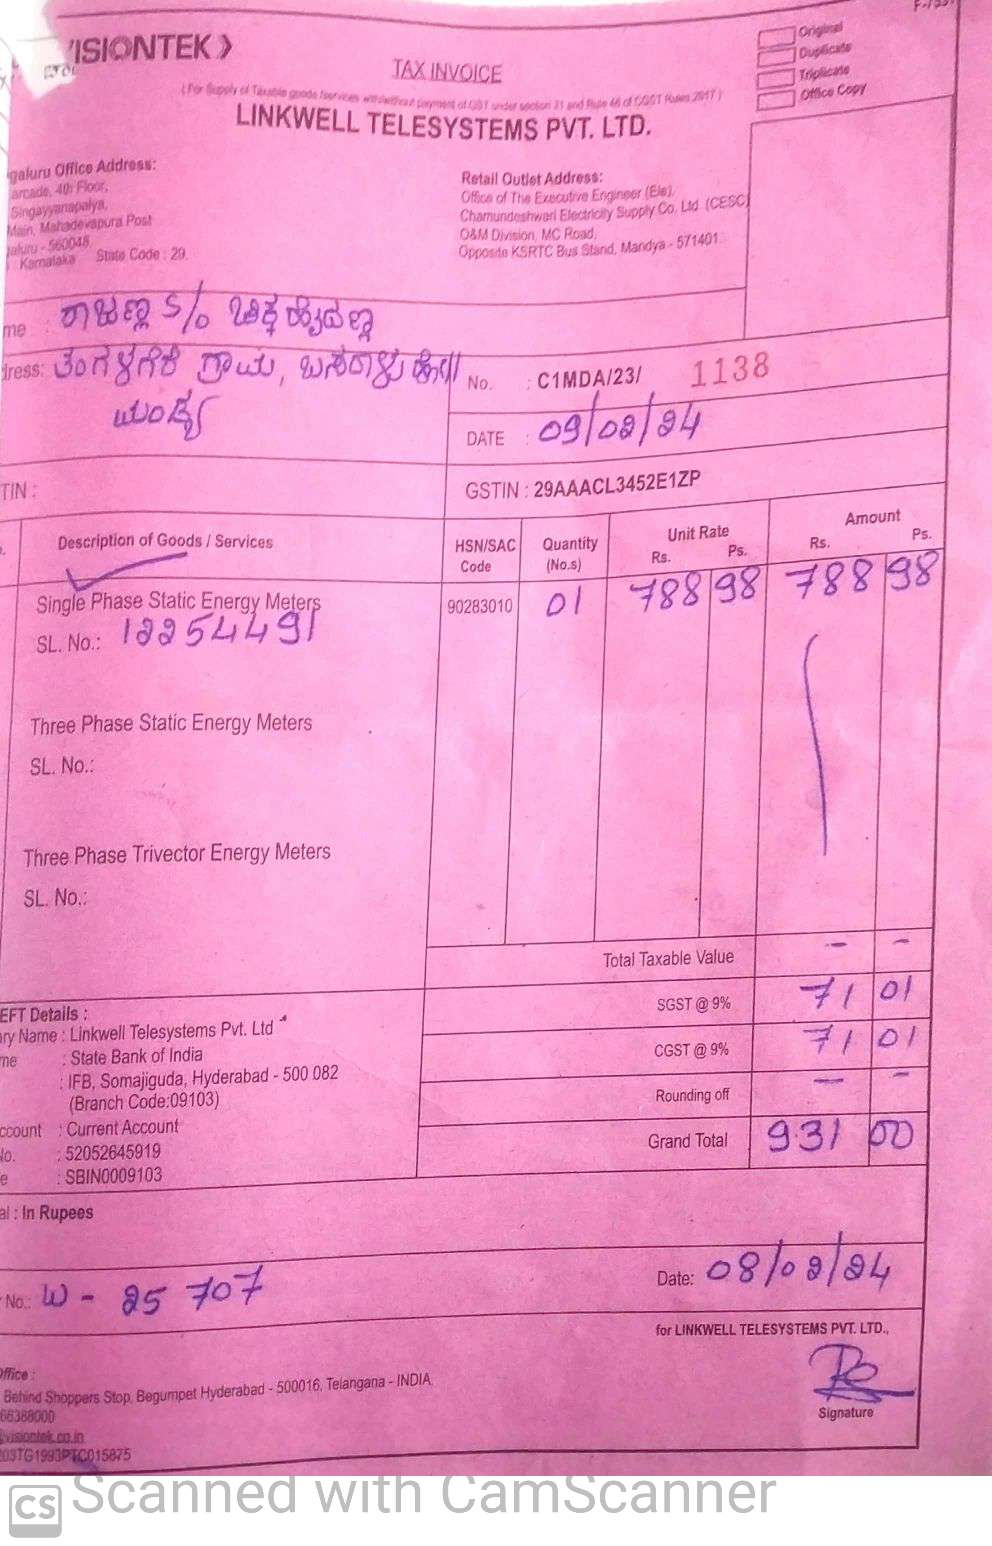 VISIONTEK
TAX INVOICE
Original
Duplicate
Triplicate
Office Copy
( For Supply of Taxable goods /services with/without payment of GST under section 31 and Rule 46 of CGST Rules 2017 )
LINKWELL TELESYSTEMS PVT. LTD.
galuru Office Address:
arcade, 4th Floor,
Singayyanapalya,
Main, Mahadevapura Post
aluru - 560048,
Karnataka State Code : 29
Retail Outlet Address:
Office of The Executive Engineer (Ele),
Chamundeshwari Electricity Supply Co. Ltd (CESC)
O&M Division, MC Road,
Opposite KSRTC Bus Stand, Mandya - 571401.
me : ರಾಜಣ್ಣ S/o ಚಿಕ್ಕಹೈದಣ್ಣ
dress: ತಂಗಳಗೆರೆ ಗ್ರಾಮ, ಬಸರಾಳು ಹೋ||
ಮಂಡ್ಯ
No. : C1MDA/23/ 1138
DATE : 09/02/24
TIN :
GSTIN : 29AAACL3452E1ZP
Description of Goods / Services
HSN/SAC Code
Quantity (No.s)
Unit Rate Rs. Ps.
Amount Rs. Ps.
Single Phase Static Energy Meters 90283010 01 788 98 788 98
SL. No.: 12254491
Three Phase Static Energy Meters
SL. No.:
Three Phase Trivector Energy Meters
SL. No.:
Total Taxable Value - -
SGST @ 9% 71 01
CGST @ 9% 71 01
Rounding off - -
Grand Total 931 00
EFT Details :
ary Name : Linkwell Telesystems Pvt. Ltd
me : State Bank of India
: IFB, Somajiguda, Hyderabad - 500 082
(Branch Code:09103)
ccount : Current Account
No. : 52052645919
e : SBIN0009103
al : In Rupees
No.: W - 25707
Date: 08/02/24
for LINKWELL TELESYSTEMS PVT. LTD.,
Signature
Office :
Behind Shoppers Stop, Begumpet Hyderabad - 500016, Telangana - INDIA.
66388000
@visiontek.co.in
203TG1993PTC015875
CS Scanned with CamScanner